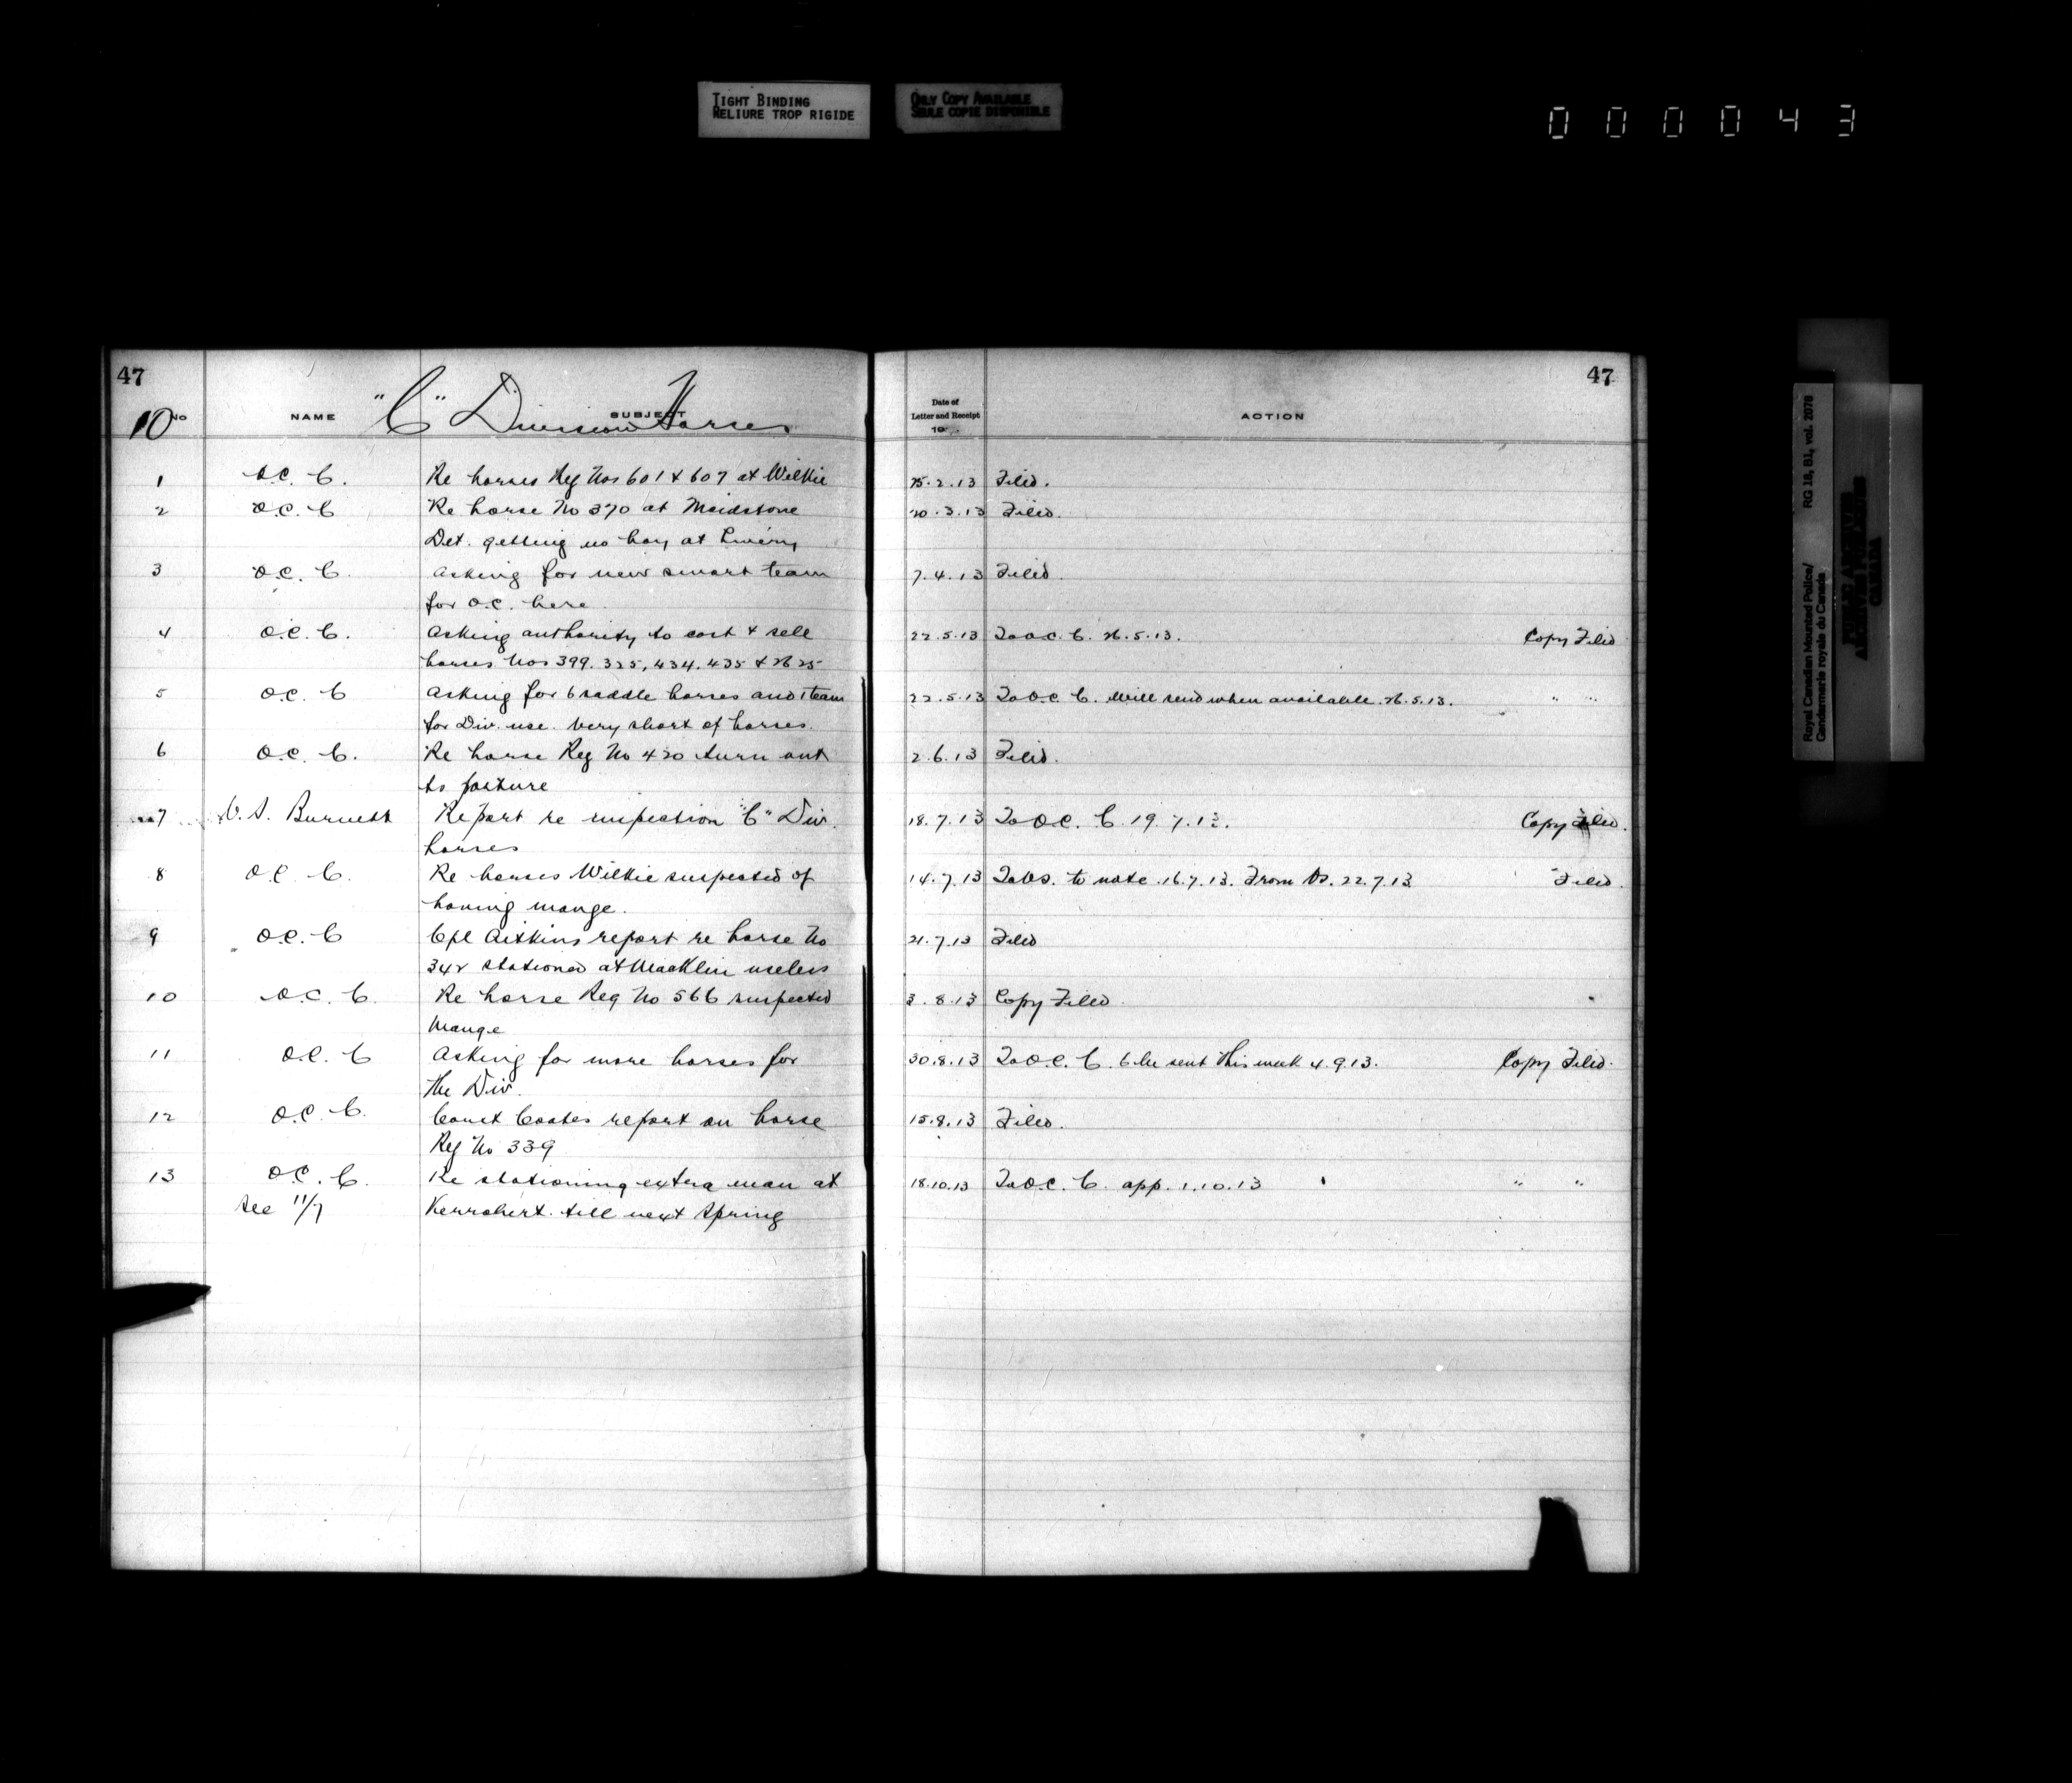 TIGHT BINDING
RELIURE TROP RIGIDE
ONLY COPY AVAILABLE
SEULE COPIE DISPONIBLE
000043
47
47
10
"C" Division Horses
No NAME SUBJECT Date of Letter and Receipt 19 ACTION
1 O.C. C. Re horses Reg Nos 601 & 607 at Wilkie 25.2.13 Filed.
2 O.C. C Re horse No 370 at Maidstone 20.3.13 Filed.
Det. getting no hay at Livery
3 O.C. C. Asking for new smart team 7.4.13 Filed.
for O.C. here.
4 O.C. C. Asking authority to cast & sell 22.5.13 To O.C. C. 26.5.13. Copy Filed
horses Nos 399. 325, 434. 435 &
5 O.C. C Asking for 6 saddle horses and 1 team 22.5.13 To O.C. C. Will send when available. 26.5.13. " "
for Div. use. Very short of horses.
6 O.C. C. Re horse Reg No 420 turn out 2.6.13 Filed.
to pasture
7 V. S. Burnett Report re inspection "C" Div. 18.7.13 To O.C. C 19.7.13. Copy Filed.
horses
8 O.C. C. Re horses Wilkie suspected of 14.7.13 To VS. to note 16.7.13. From VS. 22.7.13. " Filed.
having mange.
9 O.C. C Cpl Aitkins report re horse No 21.7.13 Filed
342 stationed at Macklin useless
10 O.C. C. Re horse Reg No 566 suspected 3.8.13 Copy Filed.
Mange
11 O.C. C Asking for more horses for 30.8.13 To O.C. C. 6 be sent this week 4.9.13. Copy Filed.
the Div.
12 O.C. C. Const Coates report on horse 15.9.13 Filed.
Reg No 339
13 O.C. C. Re stationing extra man at 18.10.13 To O.C. C. app. 1.10.13 " "
See 11/7 Kerrobert. till next Spring
Royal Canadian Mounted Police/ RG 18, B1, vol. 2078
Gendarmerie royale du Canada
PUBLIC ARCHIVES
ARCHIVES PUBLIQUES
CANADA